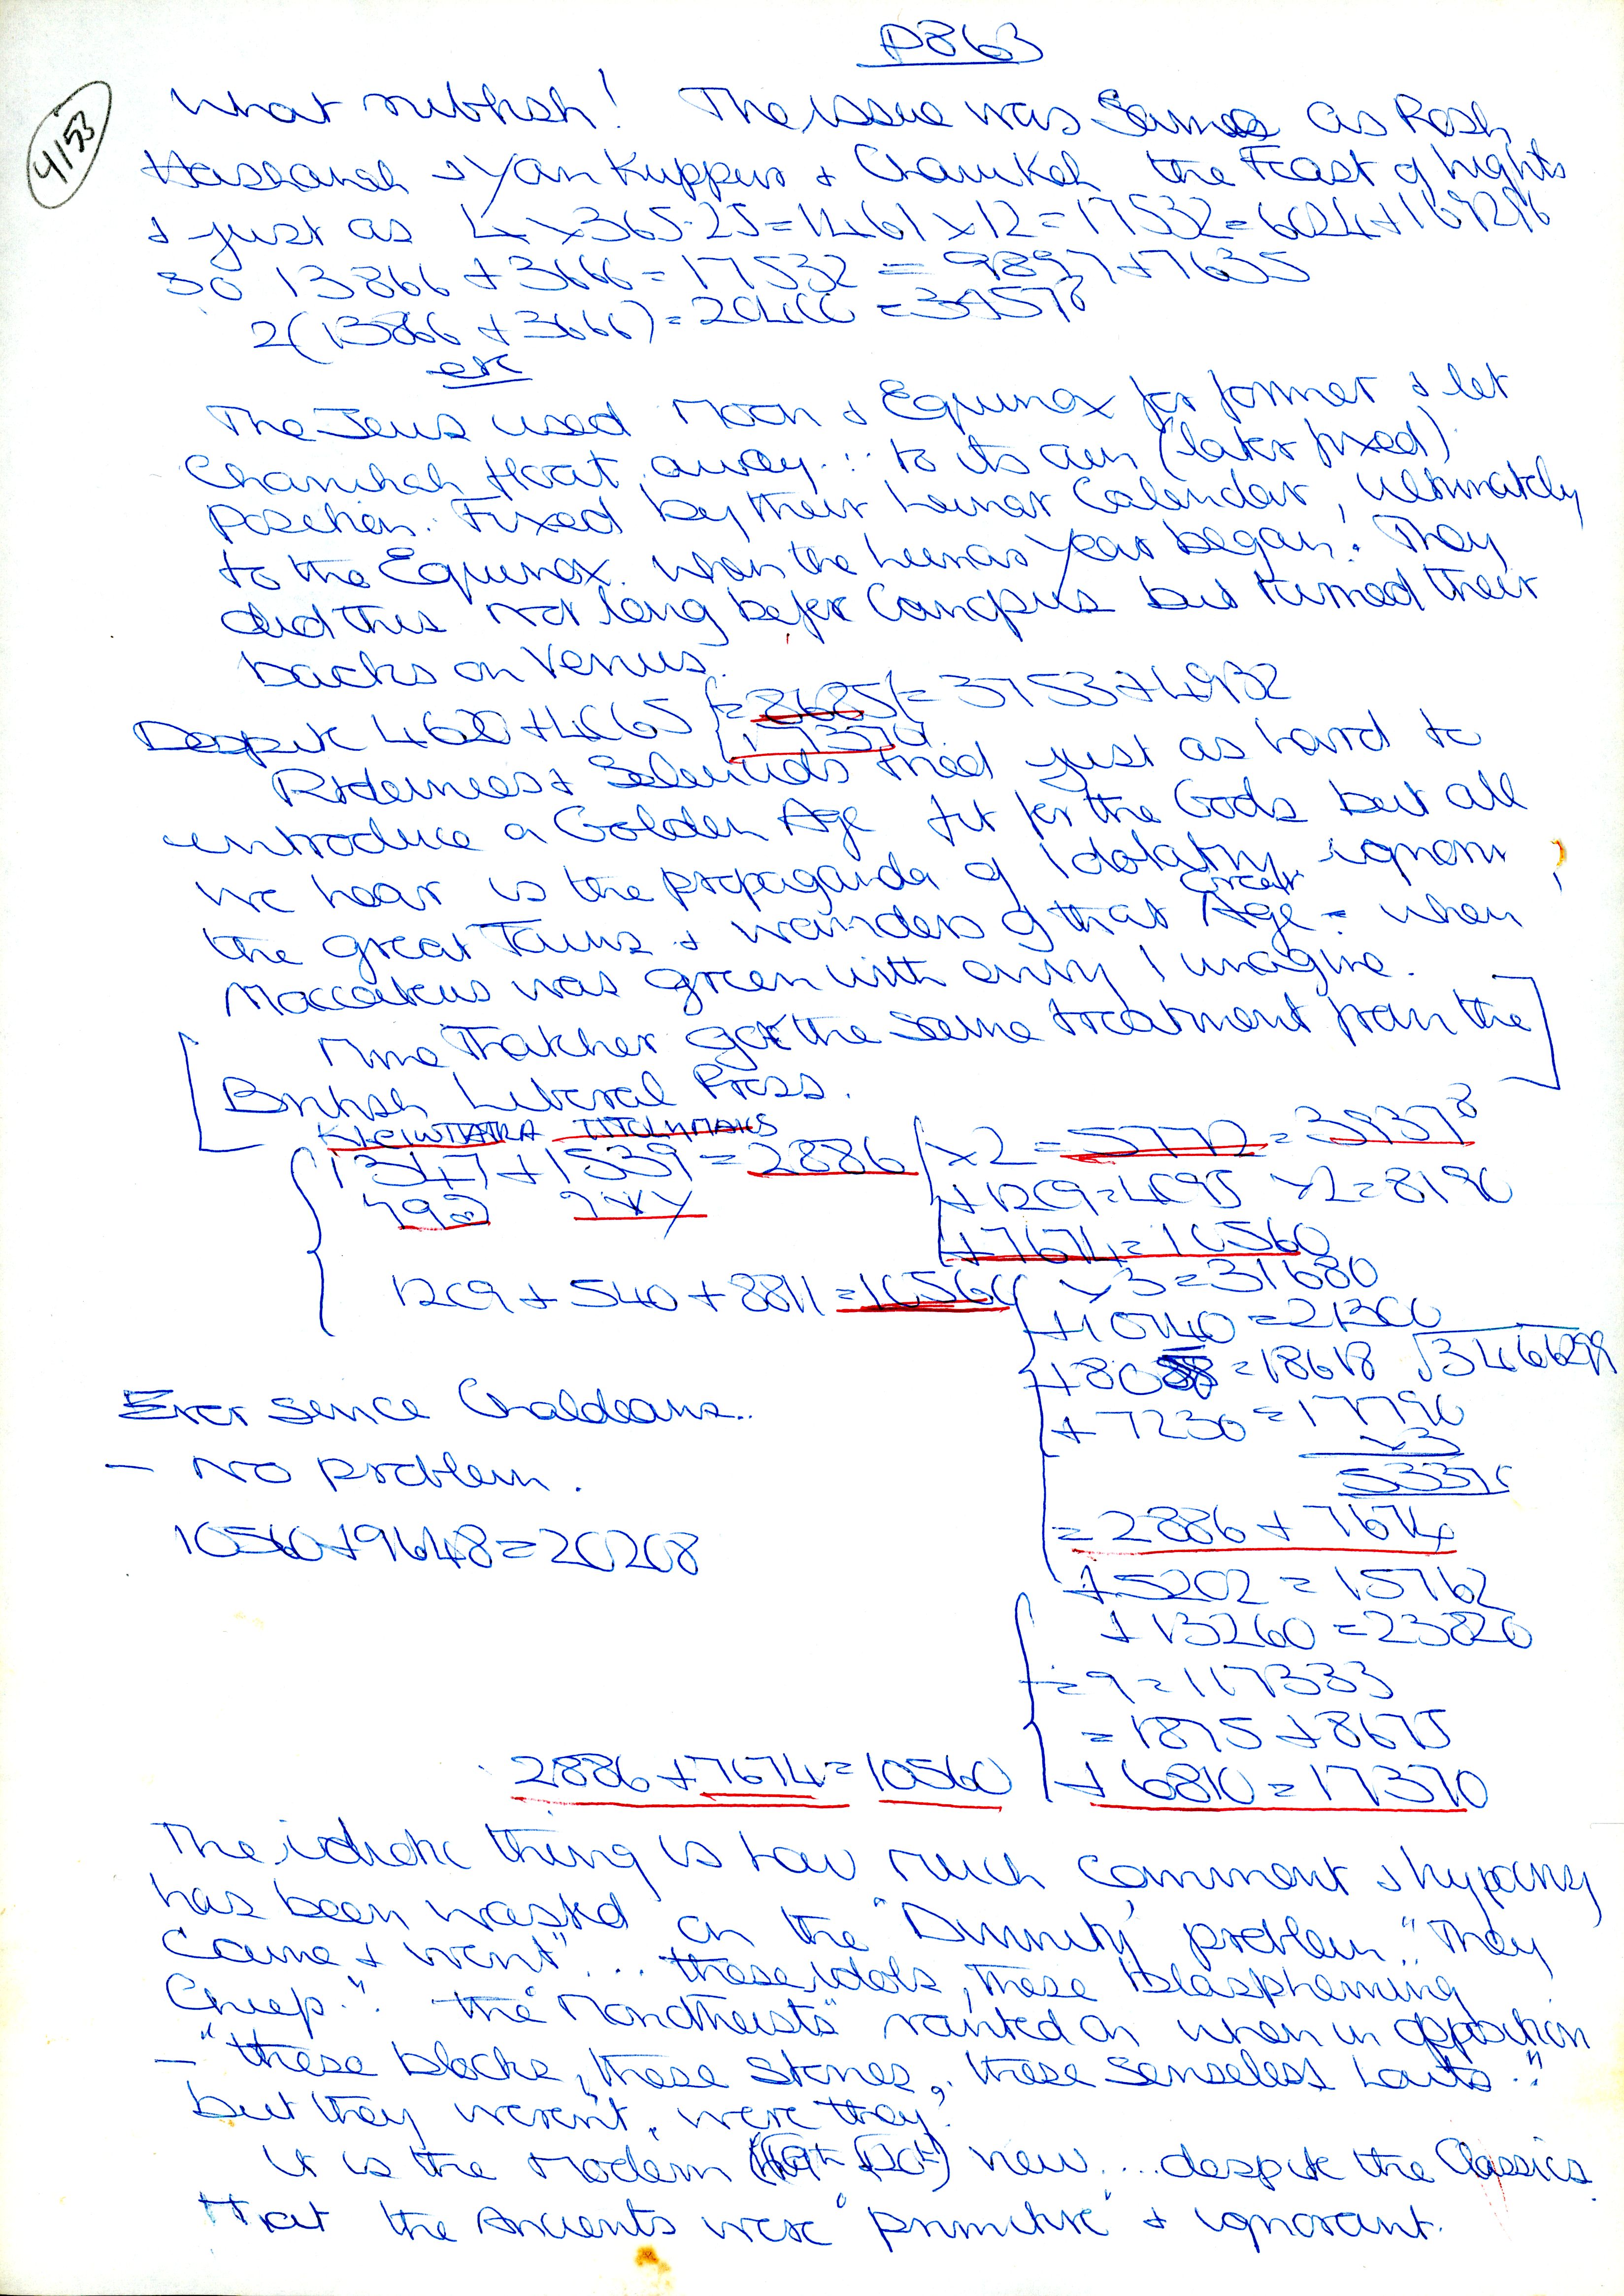 P863
4/53
What rubbish! The issue was Same as Rosh
Hashanah & Yom Kuppur & Chanukah the Feast of Lights
& just as 4 x 365.25 = 1461 x 12 = 17532 =
So 13866 + 3666 = 17532 = 9897 + 7635
2(13866 + 3666) =
etc
The Jews used Moon & Equinox for former & let
Chanukah float away ∴ to its own (later fixed)
position. Fixed by their Lunar Calendar, ultimately
to the Equinox when the Lunar Year began! They
did this not long before Canopus but turned their
backs on Venus.
Despite 4620 + 4065 = 8685 = 3753 + 4932
17370
Ptolemies & Seleucids tried just as hard to
introduce a Golden Age fit for the Gods but all
we hear is the propaganda of idolatry, ignore,
the great Towns & wonders of that Great Age - when
Maccabeus was green with envy I imagine.
[Mme Thatcher got the same treatment from the
British Liberal Press.]
1347 + 1539 = 2886 x 2 = 5772 =
+ 1209 = 4095 x 2 = 8190
+ 7674 = 10560
1209 + 540 + 8811 = 10560 x 3 = 31680
+ 10740 = 21300
+ 8058 = 18618
+ 7230 = 17790
x 3
= 2886 + 7674
+ 5202 = 15762
+ 13260 = 23820
÷ 9 = 117333
= 1875 + 8675
+ 6810 = 17370
Ever since Chaldeans..
- No problem.
10560 + 9648 = 20208
2886 + 7674 = 10560
The idiotic thing is how much comment & hypocrisy
has been wasted on the "Divinity" problem. "They
Came & went"... these idols, these blaspheming
the "Monotheists" ranted on when in opposition
- "these blocks, these stones, these senseless louts"
but they weren't, were they?
It is the Modern view.... despite the Classics
that the Ancients were "primitive" & ignorant.